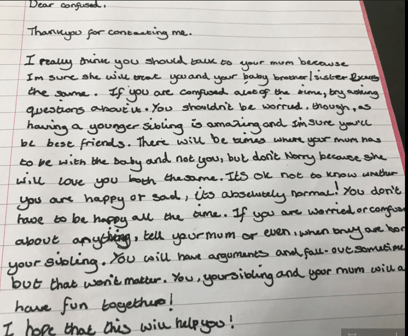 Dear confused,
Thankyou for contacting me.
I really think you should talk to your mum because
Im sure she will treat you and your baby brother/sister
the same. If you are confused alot of the time, try asking
questions about it. You shouldn't be worried, though, as
having a younger sibling is amazing and Im sure you'll
be best friends. There will be times where your mum has
to be with the baby and not you, but don't Worry because she
will love you both the same. Its ok not to know wether
you are happy or sad, its absolutely normal! You don't
have to be happy all the time. If you are worried or
about anything, tell your mum or even, when they are
your sibling. You will have arguments and fall-out
but that won't matter. You, your sibling and your mum will
have fun together!
I hope that this will help you!